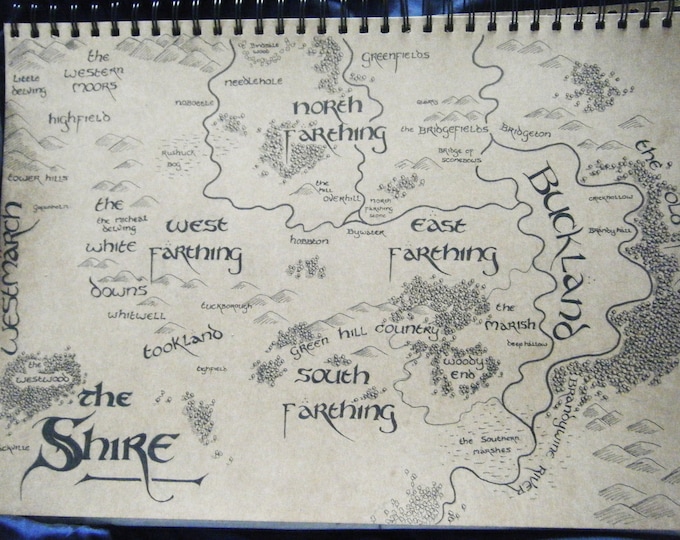 the
WESTERN
MOORS
Little
delving
HIGHFIELD
TOWER HILLS
WESTMARCH
the
the micheal
delving
white
downs
whitwell
the
WESTWOOD
the
SHIRE
needlehole
nobottle
Rushock
Bog
NORTH
FARTHING
GREENFIELDS
the BRIDGEFIELDS
Bridge of
stonebows
BRIDGETON
the
hill
OVERHILL
NORTH
farthing
stone
BYWATER
hobbiton
WEST
FARTHING
EAST
FARTHING
BUCKLAND
crickhollow
Brandy hall
the
tuckborough
TOOKLAND
GREEN HILL COUNTRY
the
MARISH
deephallow
WOODY
END
SOUTH
FARTHING
the Southern
marshes
BRANDYWINE RIVER